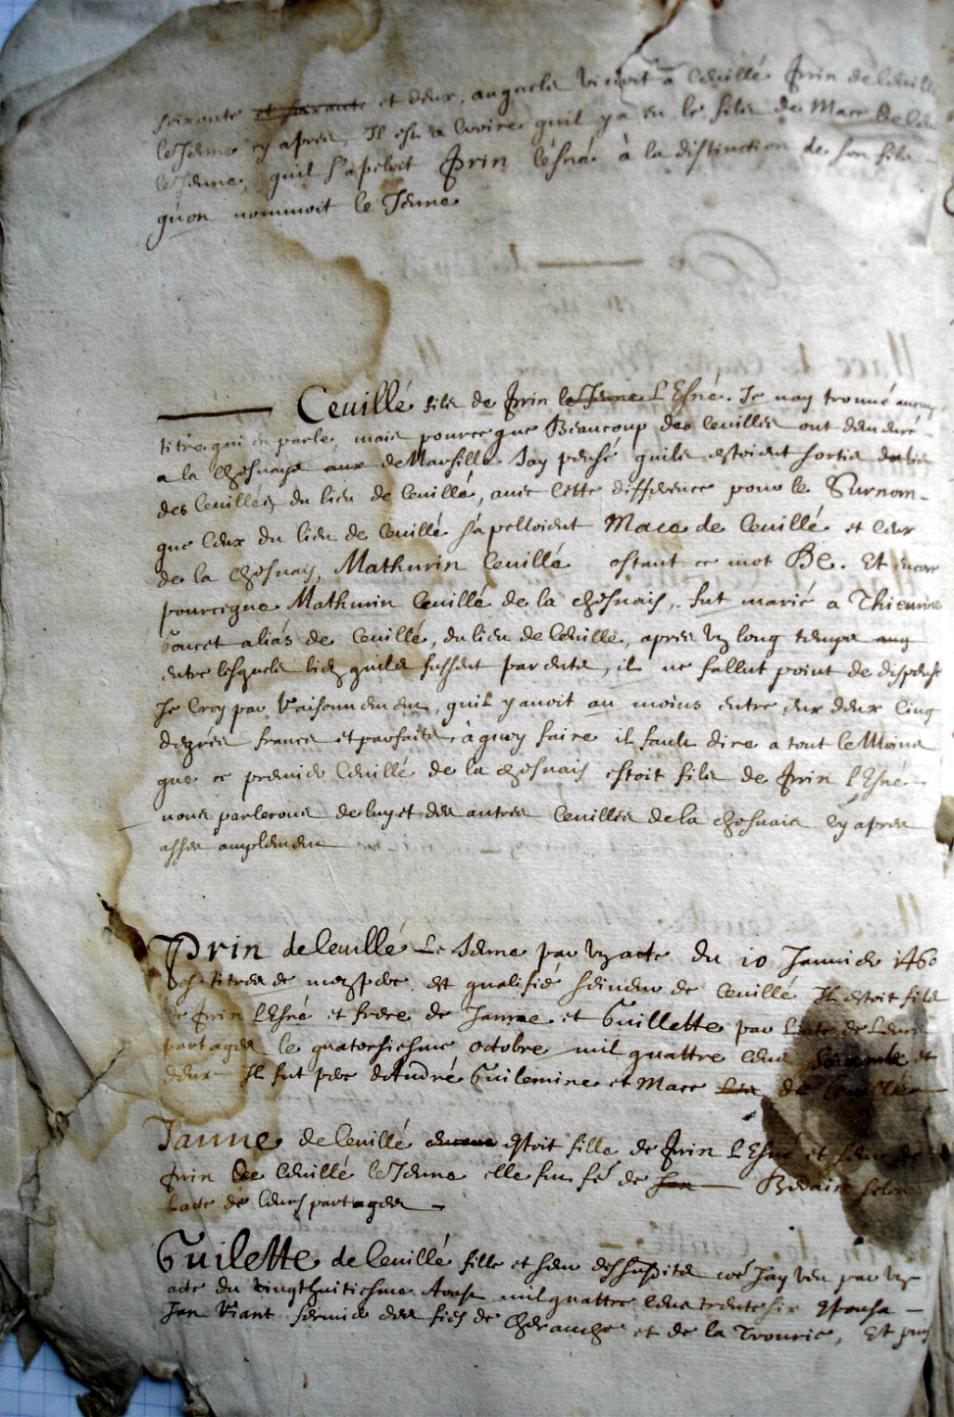 soixante et soixante et deux, auquels vivoit a Ceuillé Prin de Ceuillé
le Jeune cy apres, Il est a croire quil y a eu le fils de Mace de Ceu
le Jeune, quil s'apeloit Prin l'esné à la distinction de son fils
qu'on nommoit le Jeune
Ceuillé fils de Prin le Jeune L'Esné. Je nay trouué aucun
titre qui en parle, mais pource que Beaucoup des Ceuillés ont demeuré
a la Chesnaye aux de Marsille Jay pensé quils estoient sortis
des Ceuillés du lieu de Ceuillé, auec cette difference pour le Surnom
que ceux du lieu de Ceuillé s'apelloient Mace de Ceuillé et ceux
de la Chesnais, Mathurin Ceuillé ostant ce mot De. Et encore
pourceque Mathurin Ceuillé de la Chesnais, fut marié a Thieuine
Goucet aliás de Ceuillé, du lieu de Ceuillé, apres un long temps
entre lesquels bien quils fussent parents, il ne fallut point de dispense
Je croy par Raisonnement, quil y auoit au moins entre eux deux cinq
degrés francs et parfaits, à quoy faire il faut dire a tout le Moins
que ce premier Ceuillé de la Chesnais estoit fils de Prin l'Esné
nous parlerons de luy et des autres Ceuillés de la Chesnais cy apres
asses amplement
Prin de Ceuillé Le Jeune par un acte du 10 Januier 1460
es titres de mon pere est qualifié seineur de Ceuillé Il estoit fils
de Prin L'Esné et frere de Janne et Guillette par l'acte de leurs
partages le quatorsiesme octobre mil quattre cens soixante et
deux Il fut pere d'André Guilemine et Mace de Ceuillé
Janne de Ceuillé estoit fille de Prin L'Esné et seur de
Prin de Ceuillé le Jeune elle fut fé de selon
l'acte de leurs partages
Guilette de Ceuillé fille et seur des susdits coe Jay veu par un
acte du vingthuitiesme Aoust mil quattre cens trente six espousa
Jan Viant fermier des fiefs de et de la Trourie, et puis